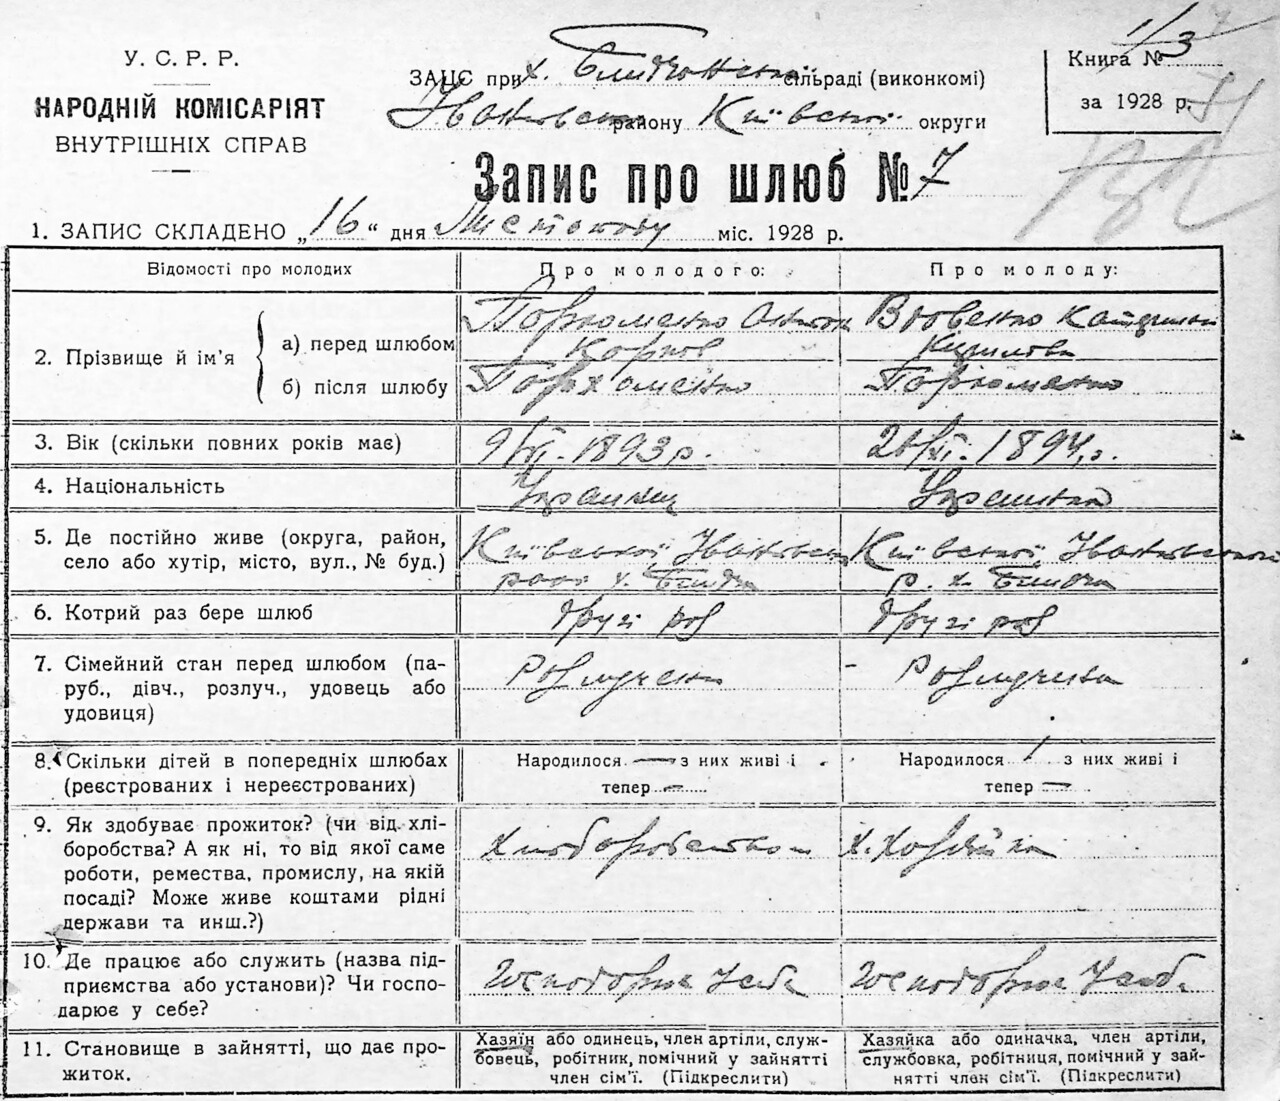 У. С. Р. Р.
НАРОДНІЙ КОМІСАРІЯТ
ВНУТРІШНІХ СПРАВ
ЗАЦС при х. сільраді (виконкомі)
району Київської округи
Книга № 1/3
за 1928 р.
Запис про шлюб № 7
1. ЗАПИС СКЛАДЕНО „16“ дня Листопаду міс. 1928 р.
Відомості про молодих
Про молодого:
Про молоду:
2. Прізвище й ім'я
а) перед шлюбом
Пархоменко Антон
Вдовенко Катерина
б) після шлюбу
Пархоменко
Пархоменко
3. Вік (скільки повних років має)
1893 р.
1894 р.
4. Національність
Українец
Українка
5. Де постійно живе (округа, район,
село або хутір, місто, вул., № буд.)
Київської Іванківськ
х. Блидча
Київської Іванківської
р. х. Блидча
6. Котрий раз бере шлюб
другі раз
другі раз
7. Сімейний стан перед шлюбом (па-
руб., дівч., розлуч., удовець або
удовиця)
Розлучена
8. Скільки дітей в попередніх шлюбах
(реєстрованих і нереєстрованих)
Народилося — з них живі і
тепер —
Народилося 1 з них живі і
тепер —
9. Як здобуває прожиток? (чи від хлі-
боробства? А як ні, то від якої саме
роботи, ремества, промислу, на якій
посаді? Може живе коштами рідні
держави та инш.?)
Хліборобством
х. Хозяйка
10. Де працює або служить (назва під-
приємства або установи)? Чи госпо-
дарює у себе?
Господарює у себе
Господарює у себе
11. Становище в зайнятті, що дає про-
житок.
Хазяїн або одинець, член артілі, служ-
бовець, робітник, помічний у зайнятті
член сім'ї. (Підкреслити)
Хазяйка або одиначка, член артілі,
службовка, робітниця, помічний у зай-
нятті член сім'ї. (Підкреслити)